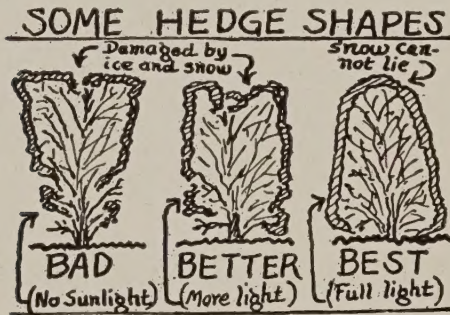 SOME HEDGE SHAPES
Damaged by
ice and snow
Snow can-
not lie
BAD
(No Sunlight)
BETTER
(More light)
BEST
(Full light)